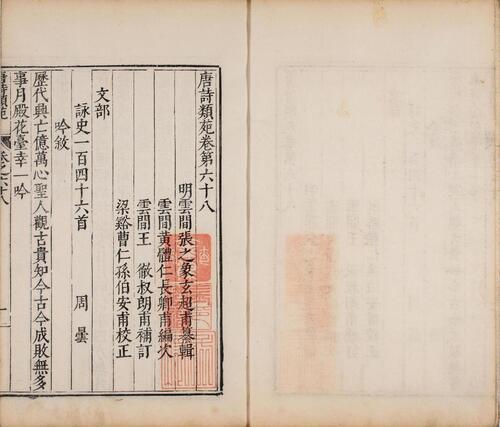 唐詩類苑卷第六十八
明雲間張之象玄超甫纂輯
雲間黃體仁長卿甫編次
雲間王　徹叔朗甫補訂
梁谿曹仁孫伯安甫校正
文部
詠史一百四十六首　周曇
吟敘
歷代興亡億萬心聖人觀古貴知今古今成敗無多
事月殿花臺幸一吟
唐詩類苑　卷之六十八　一